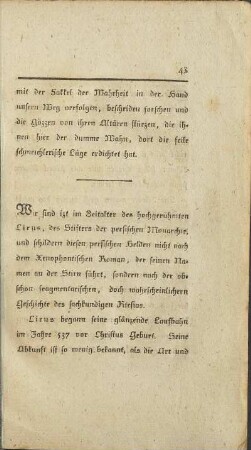 43
mit der Fakkel der Wahrheit in der Hand
unsern Weg verfolgen, bescheiden forschen und
die Gözzen von ihren Altären stürzen, die ih-
nen hier der dumme Wahn, dort die feile
schmeichlerische Lüge erdichtet hat.
Wir sind izt im Zeitalter des hochgerühmten
Cirus, des Stifters der persischen Monarchie,
und schildern diesen persischen Helden nicht nach
dem Xenophontischen Roman, der seinen Na-
men an der Stirn führt, sondern nach der ob-
schon fragmentarischen, doch wahrscheinlichern
Geschichte des sachkundigen Ktesias.
Cirus begann seine glänzende Laufbahn
im Jahre 537 vor Christus Geburt. Seine
Abkunft ist so wenig bekannt, als die Art und